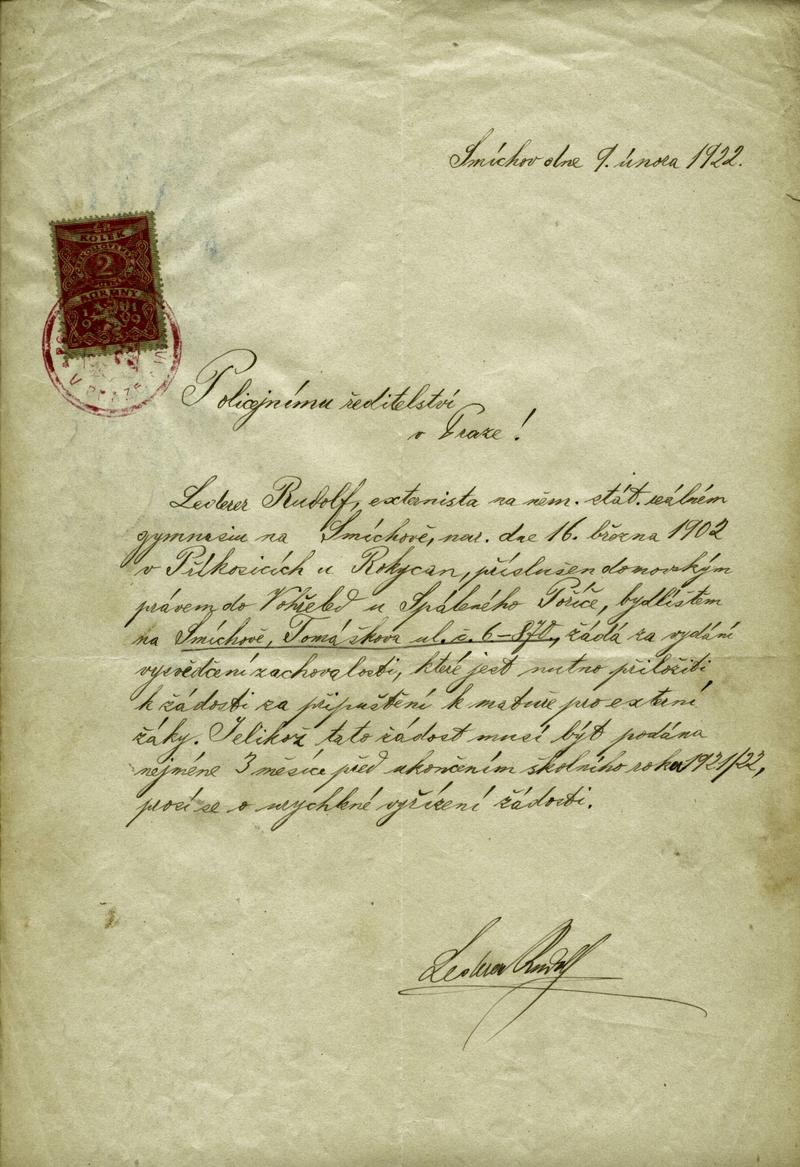 Smíchov dne 9. února 1922.
KOLEK
2
KORUNY
1919
V PRAZE
Policejnímu ředitelství
v Praze!
Lederer Rudolf, externista na něm. stát. reálném
gymnasiu na Smíchově, nar. dne 16. března 1902
v Příkosicích u Rokycan, příslušen domovským
právem do Vohřeled u Spáleného Poříče, bydlištěm
na Smíchově, Tomáškova ul. č. 6-870, žádá za vydání
vysvědčení zachovalosti, které jest nutno přiložiti
k žádosti za připuštění k matuře pro externí
žáky. Jelikož tato žádost musí býti podána
nejméne 3 měsíce před ukončením školního roku 1921/22,
prosí se o urychlené vyřízení žádosti.
Lederer Rudolf